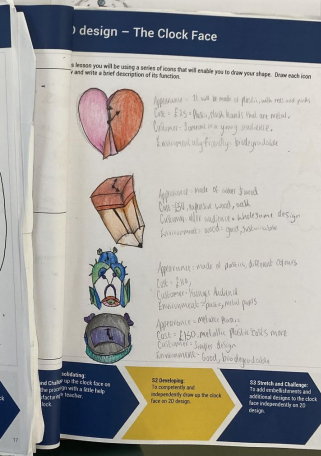 D design – The Clock Face
s lesson you will be using a series of icons that will enable you to draw your shape. Draw each icon
and write a brief description of its function.
Appearance - It will be made of plastic, with red and pink
Cost = £25 = Plastic, clock hands that are metal.
Customer = Someone in a young audience.
Environmentally friendly = biodegradable
Appearance - made of wood
Cost = £50, expensive wood,
Customer = older audience = wholesome design
Environment = wood = good, sustainable
Appearance: made of plastics, different colours
Cost =
Customer = Younger Audience
Environment = plastic, metal parts
Appearance = metallic Plastic
Cost = £150, metallic plastic costs more
Customer = simple design
Environment = Good, biodegradable
olidating:
up the clock face on
with a little help
teacher.
S2 Developing:
To competently and
independently draw up the clock
face on 2D design.
S3 Stretch and Challenge:
To add embellishments and
additional designs to the clock
face independently on 2D
design.
17